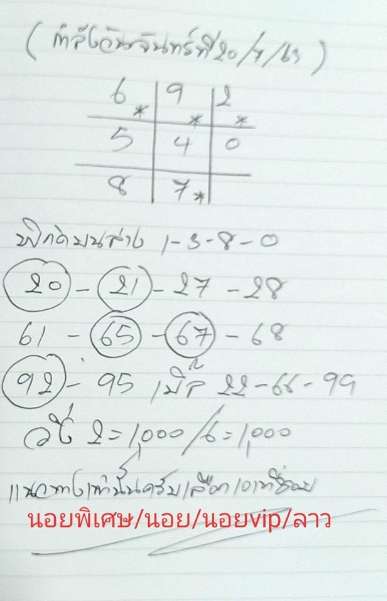 (กำลังวันจันทร์ที่20/4/63)
6* 9* 2*
5 4 0
8 7*
พิกัดบนล่าง 1-3-8-0
20-21-27-28
61-65-67-68
92-95 เบิ้ล 22-66-99
วิ่ง 2=1,000/6=1,000
แนวทางเท่านั้นครับเลือกเอาที่ชอบ
นอยพิเศษ/นอย/นอยvip/ลาว